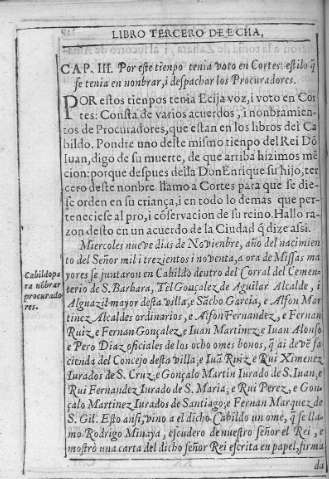 LIBRO TERCERO DE ECIIA,
CAP. III. Por este tienpo tenia voto en Cortes: estilo q̃
se tenia en nonbrar, i despachar los Procuradores.
POR estos tienpos tenia Ecija voz, i voto en Cor
tes: Consta de varios acuerdos, i nonbramien-
tos de Procuradores, que estan en los libros del Ca
bildo. Pondre uno deste mismo tienpo del Rei Dõ
Iuan, digo de su muerte, de que arriba hizimos mẽ
cion: porque despues della Don Enrique su hijo, ter
cero deste nonbre llamo a Cortes para que se die-
se orden en su criança, i en todo lo demas que per-
teneciese al pro, i cõservacion de su reino. Hallo ra-
zon desto en un acuerdo de la Ciudad q̃ dize assi:
Miercoles nueve dias de Noviẽbre, año del nacimien
to del Señor mil i trezientos i noventa, a ora de Missas ma
yores se juntaron en Cabildo dentro del Corral del Cemen-
terio de S. Barbara, Tel Gonçalez de Aguilar Alcalde, i
Alguazil mayor desta villa, e Sãcho Garcia, e Alfon Mar
tinez Alcaldes ordinarios, e Alfon Fernandez, e Fernan
Ruiz, e Fernan Gonçalez, e Iuan Martinez, e Iuan Alonso
e Pero Diaz oficiales de los ocho omes bonos, q̃ ai de vẽ fa
cienda del Concejo desta villa, e Iuã Ruiz, e Rui Ximenez
Iurados de S. Cruz, e Gonçalo Martin Iurado de S. Iuan, e
Rui Fernandez Iurado de S. Maria, e Rui Perez, e Gon-
çalo Martinez Iurados de Santiago, e Fernan Marquez de
S. Gil. Esto ansi, vino a el dicho Cabildo un ome, q̃ se lla-
mo Rodrigo Minaya, escudero de nuestro señor el Rei, e
mostrò una carta del dicho señor Rei escrita en papel, firma
da
Cabildo pa
ra nõbrar
procurado
res.